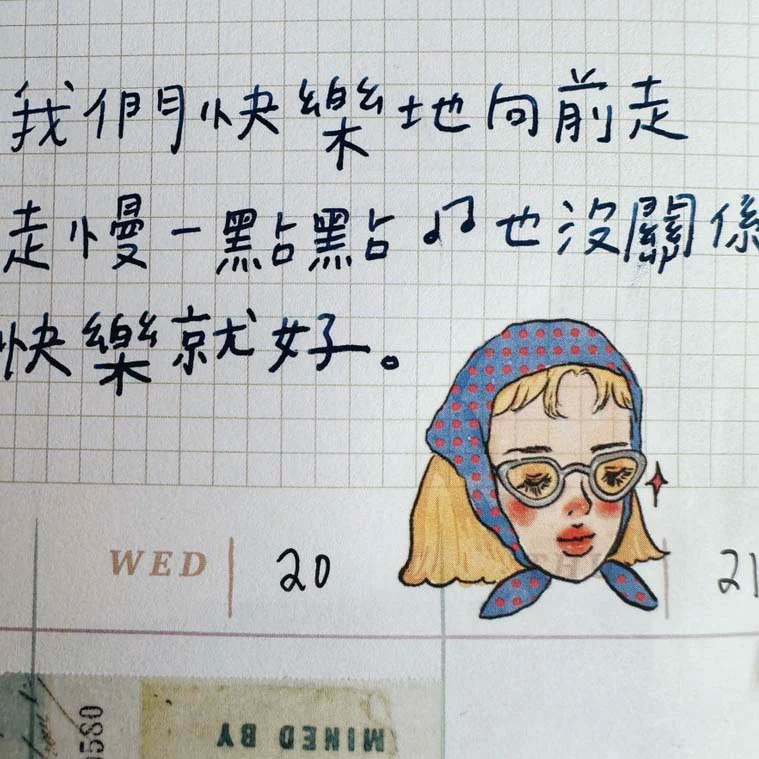 我們快樂地向前走
走慢一點點♫也沒關係
快樂就好。
WED 20
21
0580
MINED BY